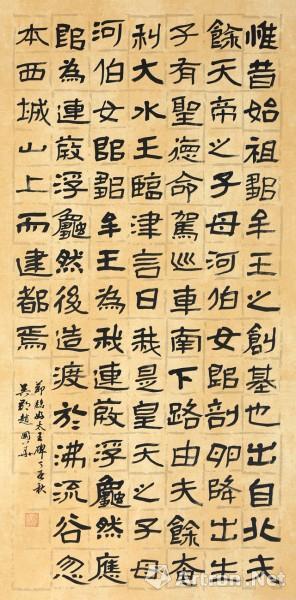 惟昔始祖鄒牟王之創基也出自北夫
餘天帝之子母河伯女郎剖卵降出生
子有聖德命駕巡車南下路由夫餘奄
利大水王臨津言曰我是皇天之子母
河伯女郎鄒牟王為我連葭浮龜然應
郎為連葭浮龜然後造渡於沸流谷忽
本西城山上而建都焉
節臨好太王碑丁亥秋
Artron.Net